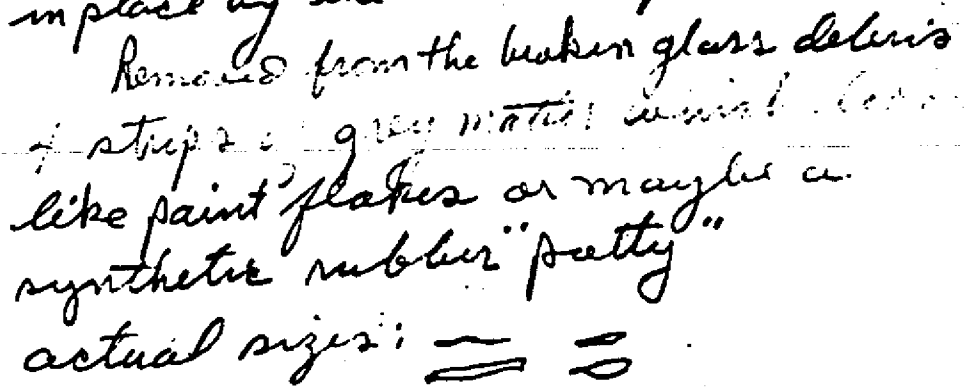 in place by
Removed from the broken glass debris
strips of grey matter which
like paint flakes or maybe a
synthetic rubber "putty"
actual sizes: